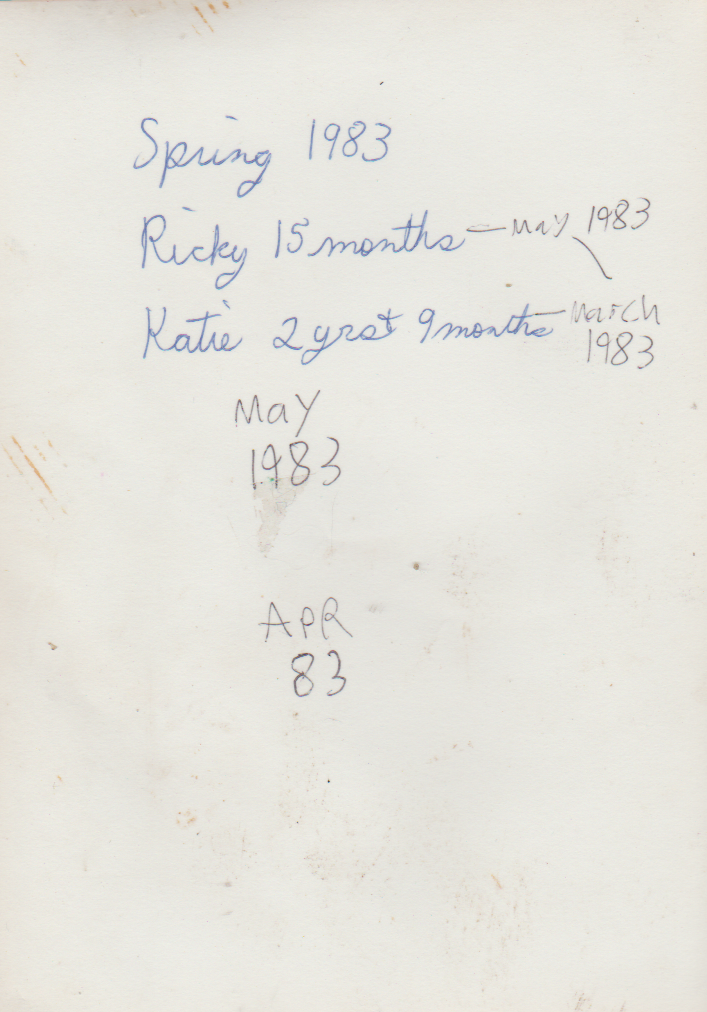 Spring 1983
Ricky 15 months — May 1983
Katie 2 yrs + 9 months — March
1983
May
1983
APR
83